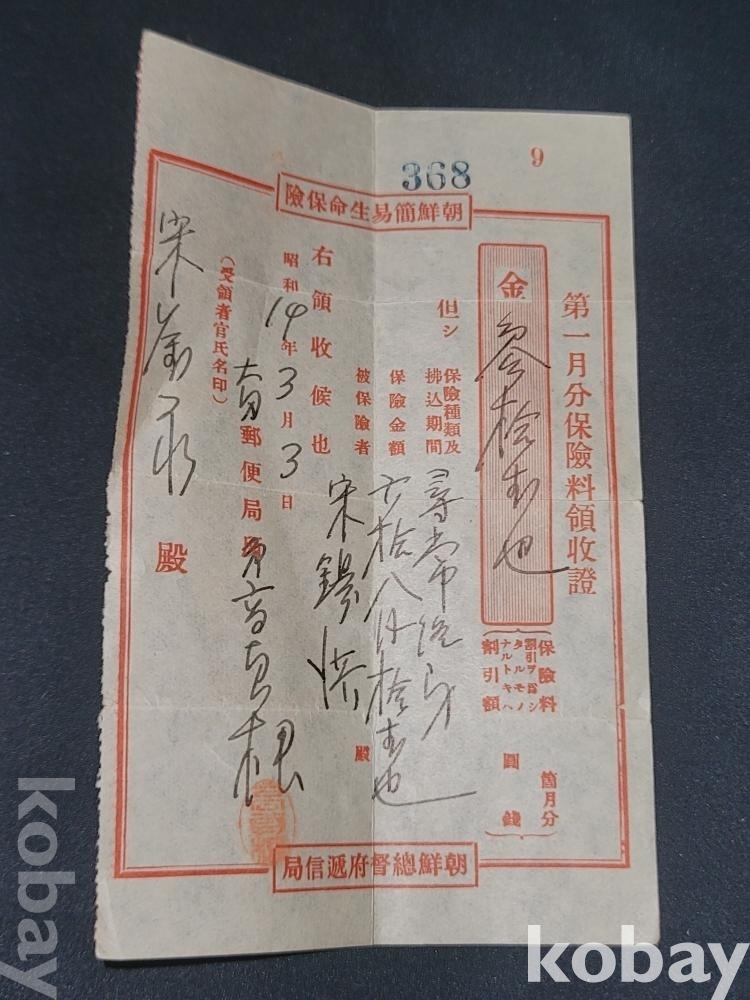 9
368
朝鮮簡易生命保險
第一月分保險料領收證
金 參拾芙也
保險料割引ヲ爲シタルモノナルトキハ割引額
箇月分
圓 錢
但シ
保險種類及拂込期間 尋常終身
保險金額
被保險者 宋錫 殿
右領收候也
昭和14年3月3日
郵便局
(受領者官氏名印)
宋 殿
朝鮮總督府遞信局
kobay
kobay